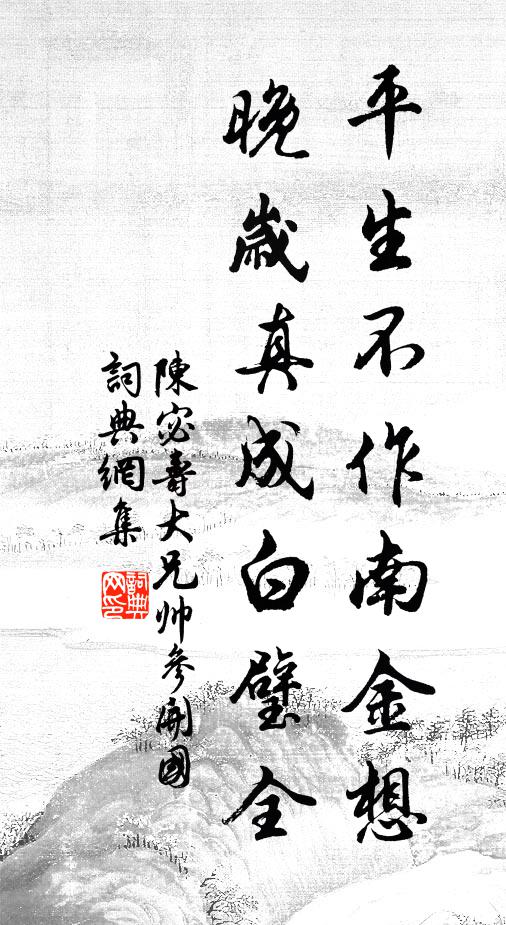 平生不作南金想
晚歲真成白璧全
陳宓壽大兄帅參開國
詞典網集
詞典網印